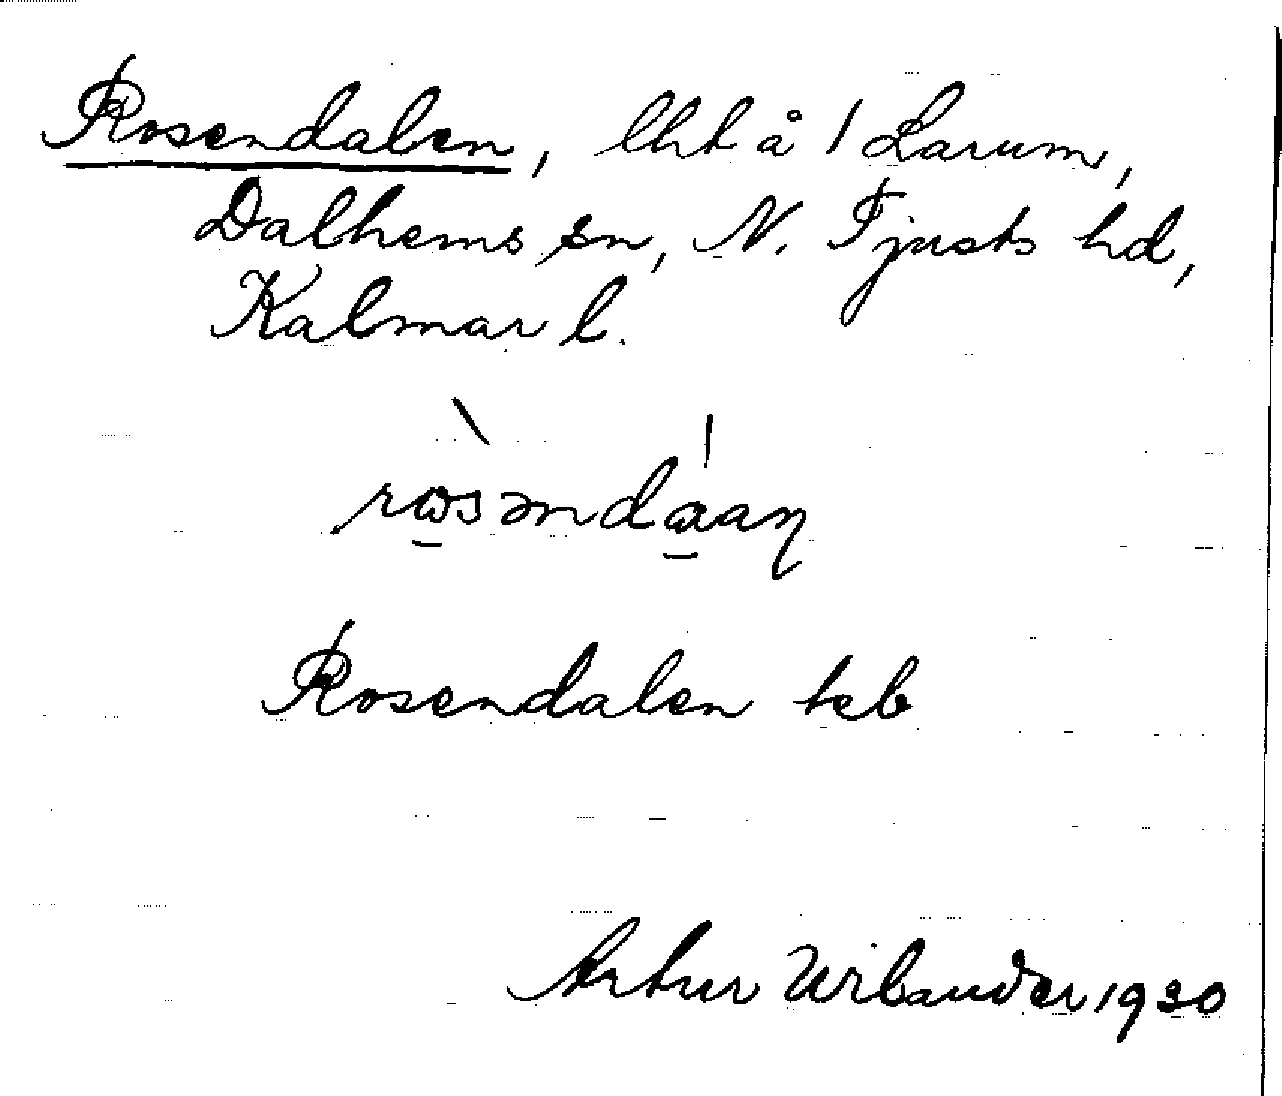 Rosendalen, lht å 1 Larum,
Dalhems sn, N. Tjusts hd,
Kalmar l.
Rosendalen teb
Artur Wilander 1930